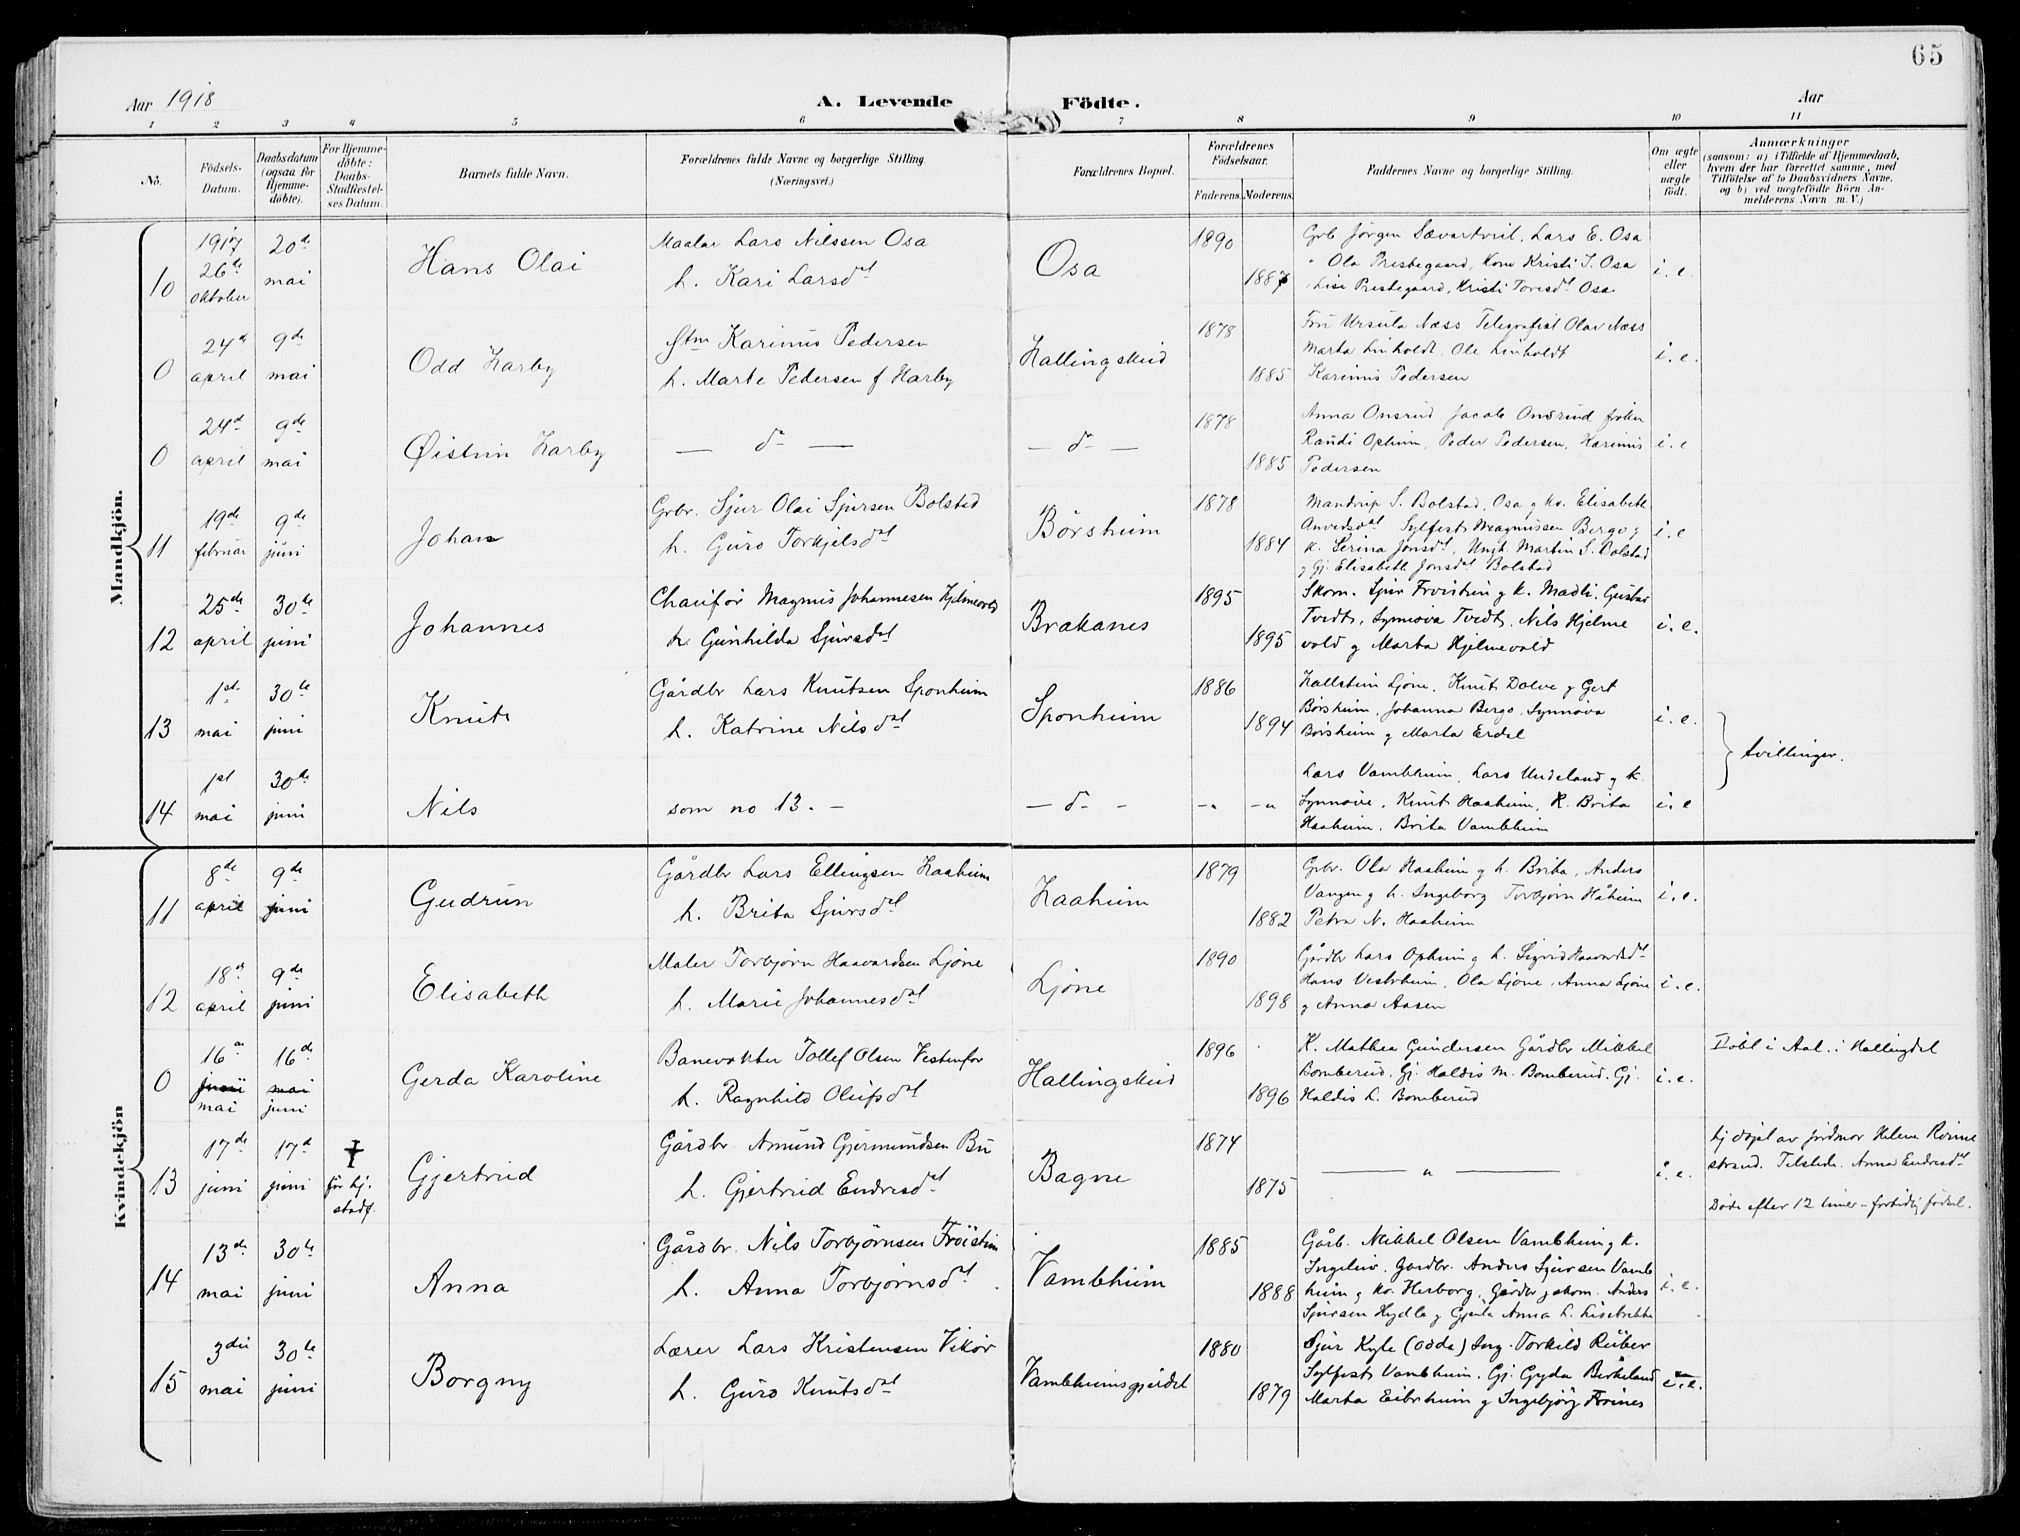 65
Aar 1918
A. Levende Födte.
Aar
1 2 3 4 5 6 7 8 9 10 11
No.
Födsels-Datum.
Daabsdatum (ogsaa for Hjemme-döbte).
For Hjemme-döbte: Daabs-Stadfæstel-ses Datum.
Barnets fulde Navn.
Forældrenes fulde Navne og borgerlige Stilling.
(Næringsvei.)
Forældrenes Bopæl.
Forældrenes Födselsaar.
Faderens. Moderens.
Faddernes Navne og borgerlige Stilling.
Om ægte eller uægte födt.
Anmærkninger
(saasom: a) i Tilfælde af Hjemmedaab,
hvem der har forrettet samme, med
Tilföielse af to Daabsvidners Navne,
og b) ved uægtefödte Börn An-
melderens Navn m. V.)
Mandkjön.
10 1917 26de oktober 20de mai
Hans Olai
Maalar Lars Nilssen Osa
h. Kari Larsdt
Osa
1890 1887
Grb Jörgen Sævartveit, Lars E. Osa
" Ola Prestegaard, Kone Kristi S. Osa
Lise Prestegaard, Kristi Toresdt Osa
i. e.
0 24d april 9de mai
Odd Harby
Stm Karinus Pedersen
h. Marte Pedersen f Harby
Hallingskeid
1878 1885
Fru Ursula Næss Telegrafist Olav Næss
Marta Linholdt, Ole Linholdt
Karinus Pedersen
i. e.
0 24d april 9de mai
Øistein Harby
— do —
— do —
1878 1885
Anna Onsrud Jacob Onsrud frøken
Randi Opheim, Peder Pedersen, Karinus
Pedersen
i. e
11 19de februar 9de juni
Johan
Grbr. Sjur Olai Sjursen Bolstad
h. Guro Torkjelsdt
Börsheim
1878 1884
Mandrup S. Bolstad, Osa g kv. Elisabeth
Anvedsdt Sylfest Magnussen Bergo g
k. Serina Jonsdt, Ungk. Martin S. Bolstad
g Gj. Elisabeth Jonsdt Bolstad
i. e
12 25de april 30te juni
Johannes
Chauffør Magnus Johannesen Hjelmevold
h. Gunhilda Sjursdt
Brakanes
1895 1895
Skom. Sjur Frøistein g k. Madli, Gustav
Tvedt, Synnøva Tvedt, Nils Hjelme
vold g Marta Hjelmevold
i. e.
13 1st mai 30te juni
Knut
Gårdbr Lars Knutsen Sponheim
h. Katrine Nilsdt
Sponheim
1886 1894
Hallstein Ljone, Knut Dolve g Gert
Börsheim, Johanna Bergo, Synnøva
Börsheim g Marta Erdal
i. e.
tvillinger.
14 1st mai 30te juni
Nils
som no 13. –
— d– –
–" –"
Lars Vambheim, Lars Undeland g k.
Synnøve, Knut Haaheim, K. Brita
Haaheim, Brita Vambheim
i. e
Kvindekjön
11 8de april 9de juni
Gudrun
Gårdbr Lars Ellingsen Haaheim
h. Brita Sjursdt
Haaheim
1879 1882
Grbr. Ola Haaheim g h. Brita, Anders
Vangen g h. Ingeborg Torbjørn Håheim
Petra N. Haaheim
i. e.
12 18d april 9de juni
Elisabeth
Maler Torbjørn Haavardsen Ljone
h. Marie Johannesdt
Ljone
1890 1898
Gårdbr Lars Opheim g h. Sigrid Haavardsdt
Hans Vestrheim, Ola Ljone, Anna Ljone
g Anna Aasen
i. e.
0 16de juni mai 16de mai juni
Gerda Karoline
Banevokter Tollef Olsen Vestenfor
h. Ragnhild Olufsdt
Hallingskeid
1896 1896
K. Mathea Gundersen Gårdbr Mikkel
Bomberud, Gj. Haldis M. Bomberud. Gj.
Haldis L. Bomberud
i. e.
Döbt i Aal i Hallingdal
13 17de juni 17d juni
✝ för hj. stadf.
Gjertrud
Gårdbr. Amund Gjermundsen Bu
h. Gjertrud Endresdt
Bagne
1874 1875
— " —
i. e.
hj döpt av jordmor Helene Rorine
strand. Tilstede. Anna Endresdt
Døde efter 12 timer – fortidig födsel.
14 13de mai 30te juni
Anna
Gårdbr. Nils Torbjørnsen Frøistein
h. Anna Torbjørnsdt
Vambheim
1885 1888
Gårb. Mikkel Olsen Vambheim g k.
Ingeleiv, Gardbr. Anders Sjursen Vamb
heim g kv. Herborg, Gårdbr g skom. Anders
Sjursen Hydle g Gjenta Anna L. Lisebrekke
i. e.
15 3die mai 30te juni
Borgny
Lærer Lars Kristensen Vikör
h. Guro Knutsdt
Vambheimsgjeidet
1880 1879
Sjur Kyle (Odda) Ing. Torkild Reiber
Sylfest Vambheim, Gj. Gyda Birkeland
Marta Eibrheim g Ingebjörg Freines
i. e.